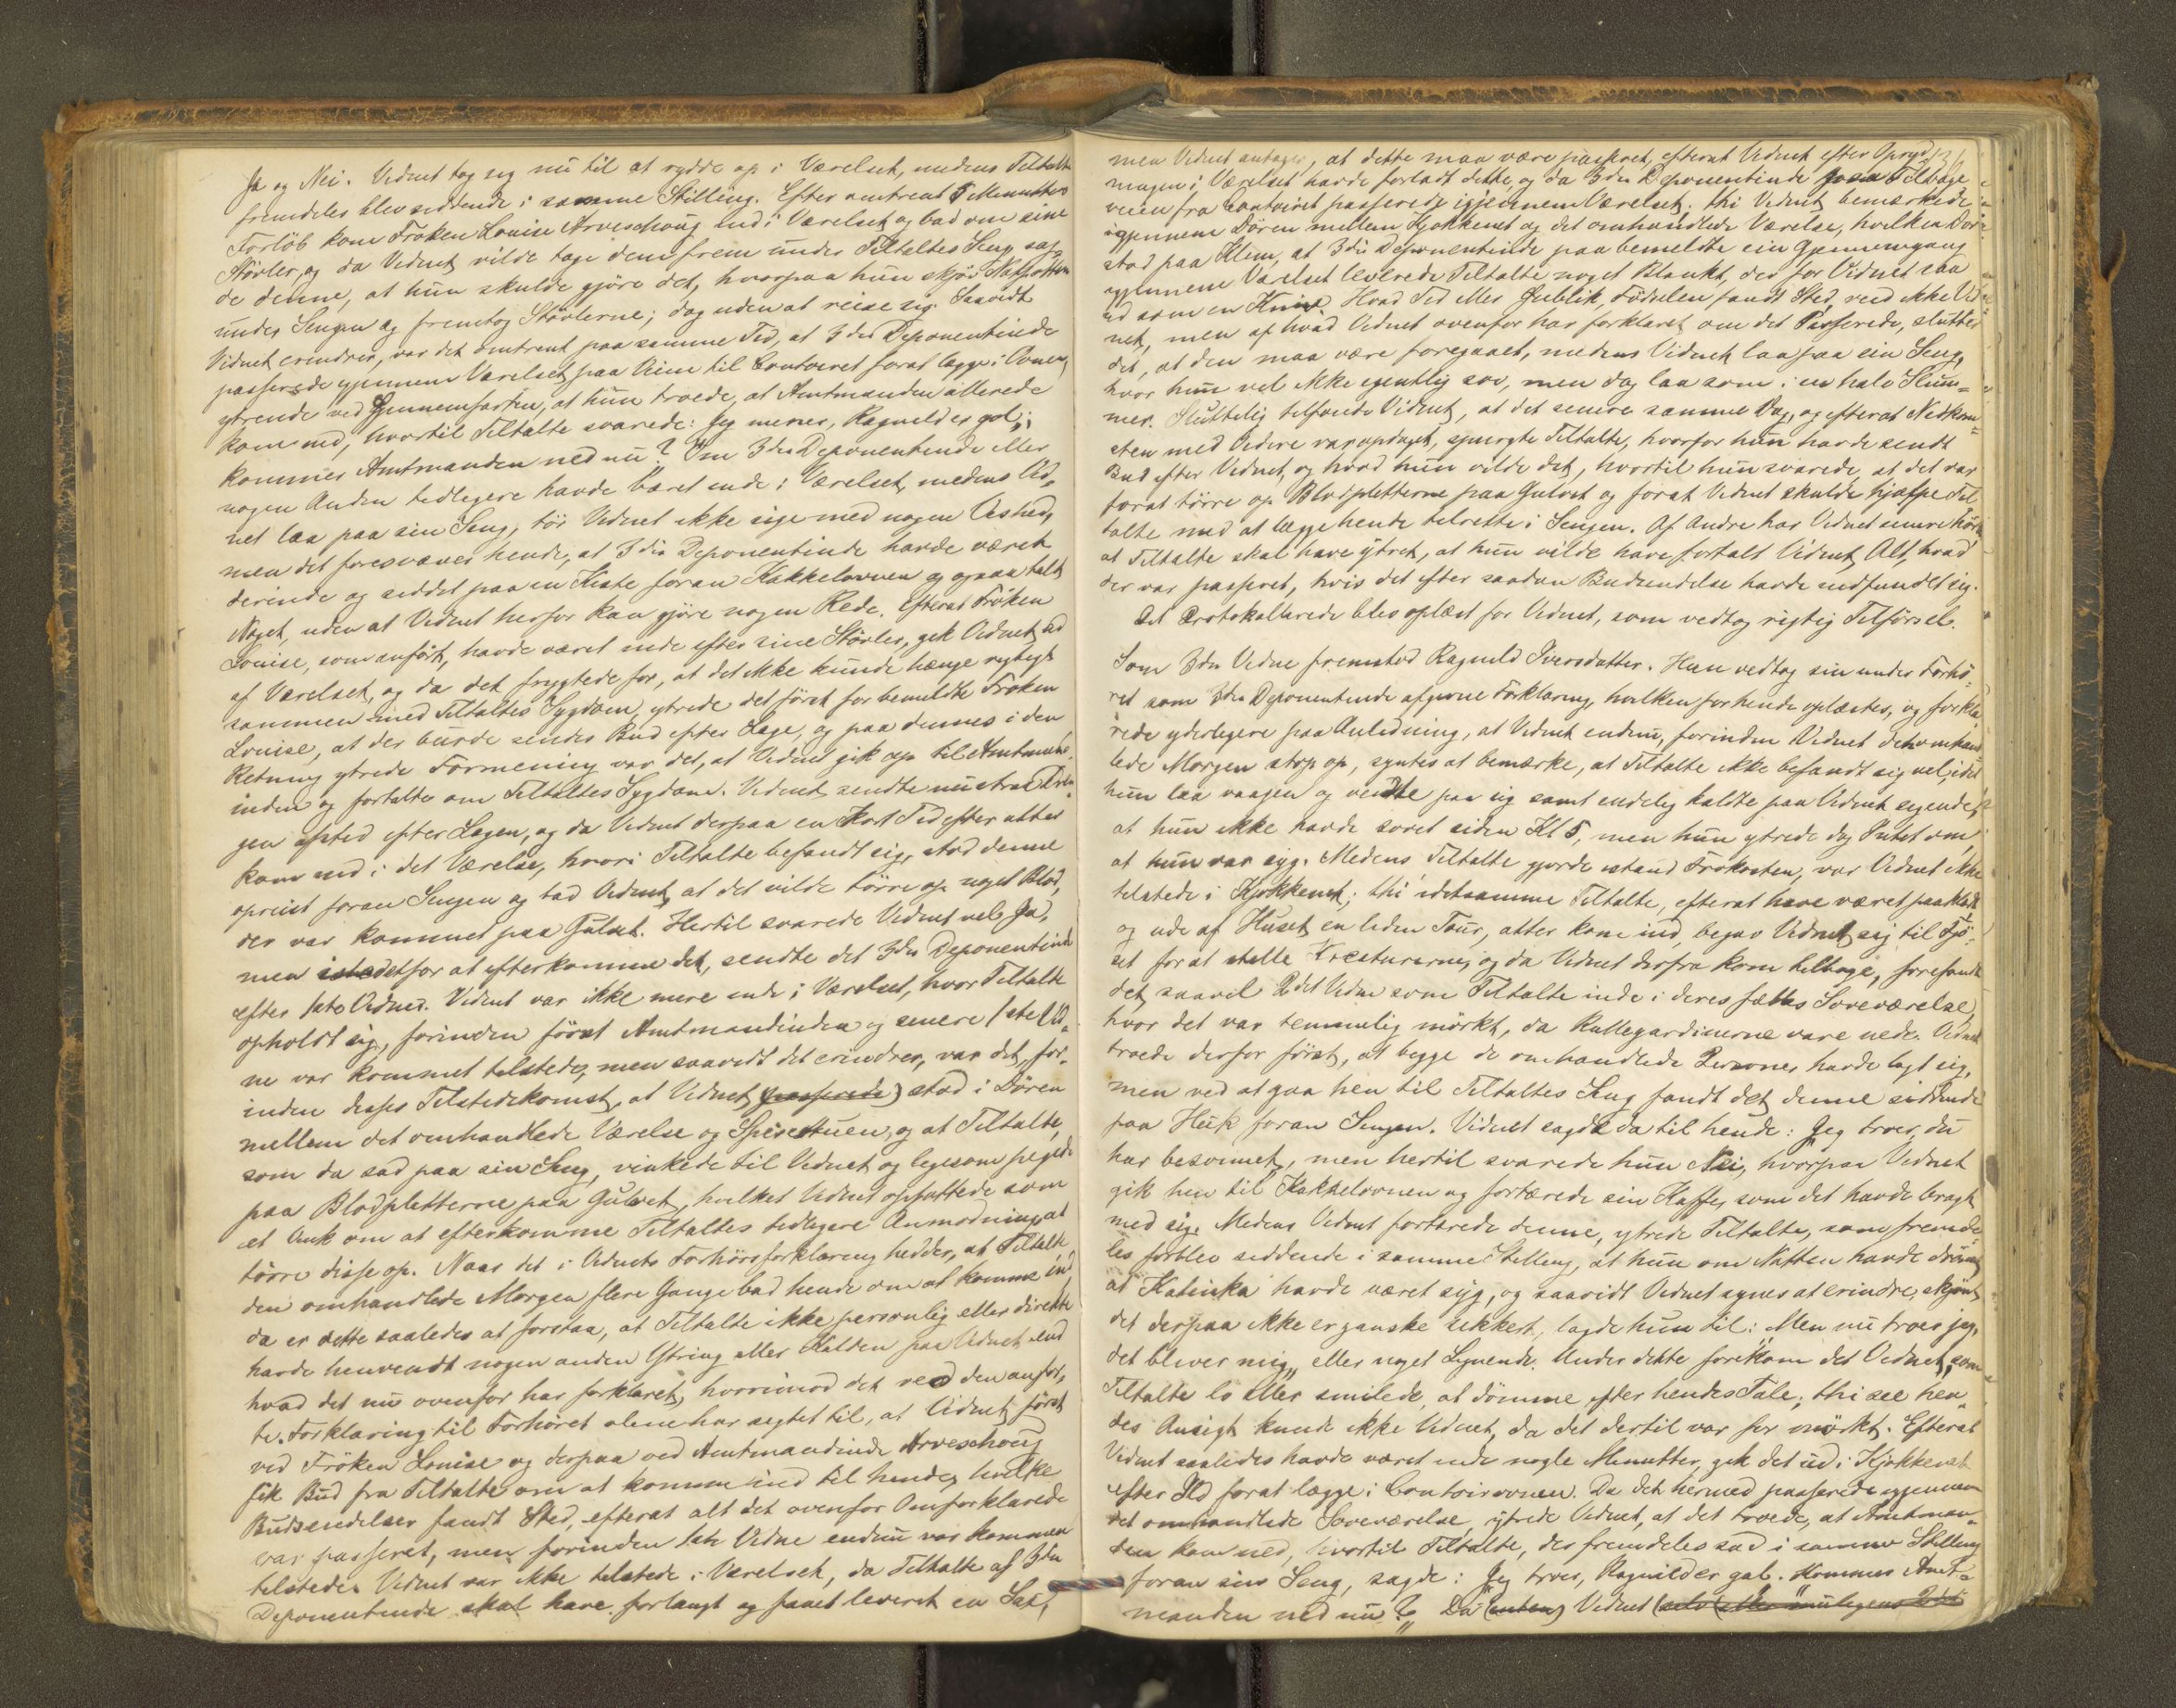 Ja og Nei. Vidnet tog sig nu til at rydde op i Værelset, medens Tiltalte
fremdeles blev siddende i samme Stilling. Efter omtrent 5 Minutters
Forløb kom Frøken Louise Arveschoug ind i Værelset og bad om sine
Støvler, og da Vidnet vilde tage dem frem under Tiltaltes Seng, sag-
de denne, at hun skulde gjøre det, hvorpaa hun skjød Natpotten
under Sengen og fremtog Støvlerne; dog uden at reise sig. Saavidt
Vidnet erindrer, var det omtrent paa samme Tid, at 3die Deponentinde
passerede gjennem Værelset paa Veien til Contoiret forat lægge i Ovnen,
ytrende ved Gjennemfarten, at hun troede, at Amtmanden allerede
kom ned, hvortil Tiltalte svarede: Jeg mener, Ragnild er gal;
kommer Amtmanden ned nu? Om 3die Deponentinde eller
nogen Anden tidligere havde været inde i Værelset, medens Vid-
net laa paa sin Seng, tør Vidnet ikke sige med nogen Vished,
men det foresvæver hende, at 3die Deponentinde havde været
derinde og siddet paa en Kiste foran Kakkelovnen og ogsaa talt
Noget, uden at Vidnet herfor kan gjøre nogen Rede. Efterat Frøken
Louise, som anført, havde været inde efter sine Støvler, gik Vidnet ud
af Værelset, og da det frygtede for, at det ikke kunde hænge rigtigt
sammen med Tiltaltes Sygdom, ytrede det først for bemeldte Frøken
Louise, at der burde sendes Bud efter Læge, og paa dennes i den
Retning ytrede Formening var det, at Vidnet gik op til Amtmand-
inden og fortalte om Tiltaltes Sygdom. Vidnet sendte nu strax Dren-
gen afsted efter Lægen, og da Vidnet derpaa en kort Tid efter atter
kom ind i det Værelse, hvori Tiltalte befandt sig, stod denne
opreist foran Sengen og bad Vidnet, at det vilde tørre op noget Blod,
der var kommet paa Gulvet. Hertil svarede Vidnet vel Ja,
men istedetfor at efterkomme det, sendte det 3die Deponentinde
efter 1ste Vidne. Vidnet var ikke mere inde i Værelset, hvor Tiltalte
opholdt sig, forinden først Amtmandinden og senere 1ste Vid-
ne var kommet tilstede, men saavidt det erindrer, var det, for-
inden disses Tilstedekomst, at Vidnet (passerede) stod i Døren
mellem det omhandlede Værelse og Spisestuen, og at Tiltalte,
som da sad paa sin Seng, vinkede til Vidnet og ligesom pegede
paa Blodpletterne paa Gulvet, hvilket Vidnet opfattede som
et Vink om at efterkomme Tiltaltes tidligere Anmodning at
tørre disse op. Naar det i Vidnets Forhørsforklaring hedder, at Tiltalte
den omhandlede Morgen flere Gange bad hende om at komme ind,
da er dette saaledes at forstaa, at Tiltalte ikke personlig eller direkte
havde henvendt nogen anden Ytring eller Kalden paa Vidnet end
hvad det nu ovenfor har forklaret, hvorimod det ved den anfør-
te Forklaring til Forhøret alene har sigtet til, at Vidnet først
ved Frøken Louise og derpaa ved Amtmandinde Arveschoug
fik Bud fra Tiltalte om at komme ind til hende, hvilke
Budsendelser fandt Sted, efterat alt det ovenfor Omforklarede
var passeret, men forinden 1ste Vidne endnu var kommen
tilstede. Vidnet var ikke tilstede i Værelset, da Tiltalte af 3die
Deponentinde skal have forlangt og faaet leveret en Sax,
men Vidnet antager, at dette maa være passeret, efterat Vidnet efter Opryd-
ningen i Værelset havde forladt dette, og da 3die Deponentinde paa Tilbage-
veien fra Contoiret passerede igjennem Værelset. thi Vidnet bemærkede
igjennem Døren mellem Kjøkkenet og det omhandlede Værelse, hvilken Dør
stod paa Klem, at 3die Deponentinde paa bemeldte sin Gjennemgang
gjennem Værelset leverede Tiltalte noget Blankt, der for Vidnet saa
ud som en Kniv. Hvad Tid eller Øieblik, Fødselen fandt Sted, veed ikke Vid-
net, men af hvad Vidnet ovenfor har forklaret om det Passerede, slutter
det, at den maa være foregaaet, medens Vidnet laa paa sin Seng,
hvor hun vel ikke egentlig sov, men dog laa som i en halv Slum-
mer. Sluttelig tilføiede Vidnet, at det senere samme Dag, og efterat Nedkom-
sten med Videre var opdaget, spurgte Tiltalte, hvorfor hun havde sendt
Bud efter Vidnet, og hvad hun vilde det, hvortil hun svarede, at det var
forat tørre op Blodpletterne paa Gulvet og forat Vidnet skulde hjælpe Til-
talte med at lægge hende tilrette i Sengen. Af Andre har Vidnet senere hørt,
at Tiltalte skal have ytret, at hun vilde have fortalt Vidnet Alt, hvad
der var passeret, hvis det efter saadan Budsendelse havde indfundet sig.
Det Protokollerede blev oplæst for Vidnet, som vedtog rigtig Tilførsel.
Som 3die Vidne fremstod Ragnild Iversdatter. Hun vedtog sin under Forhø-
ret som 3die Deponentinde afgivne Forklaring, hvilken for hende oplæstes, og forkla-
rede yderligere paa Anledning, at Vidnet endnu, forinden Vidnet det omhand-
lede Morgen stop op, syntes at bemærke, at Tiltalte ikke befandt sig vel, idet
hun laa vaagen og vendte paa sig samt endelig kaldte paa Vidnet sigende,
at hun ikke havde sovet siden Kl 5, men hun ytrede dog Intet om,
at hun var syg. Medens Tiltalte gjorde istand Frokosten, var Vidnet ikke
tilstede i Kjøkkenet; thi idetsamme Tiltalte, efterat have været paaklædt
og ude af Huset en liden Tour, atter kom ind, begav Vidnet sig til Fjø-
set for at stelle Kreaturerne, og da Vidnet derfra kom tilbage, forefandt
det saavel 2det Vidne som Tiltalte inde i deres fælles Soveværelse,
hvor det var temmelig mørkt, da Rullegardinerne vare nede. Vidnet
troede derfor først, at begge de omhandlede Personer havde lagt sig,
men ved at gaa hen til Tiltaltes Seng fandt det denne siddende
paa Huk foran Sengen. Vidnet sagde da til hende: Jeg troer, du
har besvimet, men hertil svarede hun Nei, hvorpaa Vidnet
gik hen til Kakkelovnen og fortærede sin Kaffe, som det havde bragt
med sig. Medens Vidnet fortærede denne, ytrede Tiltalte, som fremde-
les forblev siddende i samme Stilling, at hun om Natten havde drømt,
at Katinka havde været syg, og saavidt Vidnet synes at erindre, skjønt
det derpaa ikke er ganske sikkert, lagde hun til: „Men nu troer jeg,
det bliver mig„ eller noget Lignende. Under dette forekom det Vidnet, som
Tiltalte lo eller smilede, at dømme efter hendes Tale; thi see hen-
des Ansigt kunde ikke Vidnet, da det dertil var for mørkt. Efterat
Vidnet saaledes havde været inde nogle Minutter, gik det ud i Kjøkkenet
efter Ild forat lægge i Contoirovnen. Da det hermed passerede gjennem
det omhandlede Soveværelse, ytrede Vidnet, at det troede, at Amtman-
den kom ned, hvortil Tiltalte, der fremdeles sad i samme Stilling
foran sin Seng, sagde: „Jeg troer, Ragnild er gal. Kommer Amt-
manden ned nu?„ Da (enten) Vidnet (selv eller muligens 2det